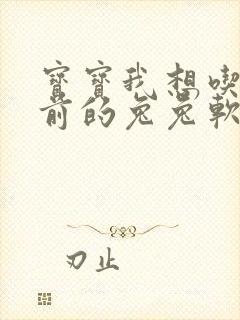 寶寶我想喫
前的兔兔軟
刃止